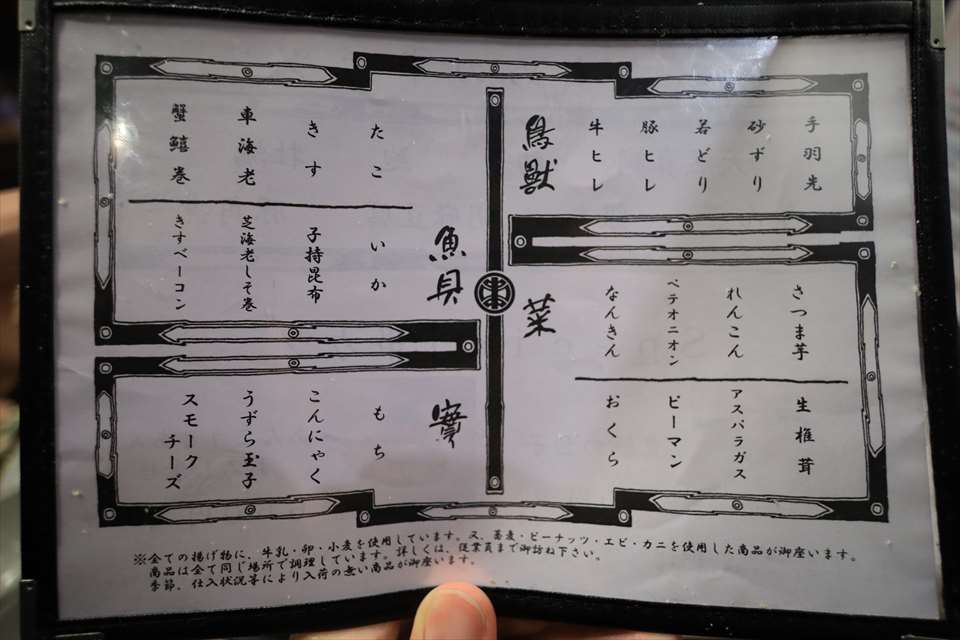 鳥獣
手羽先
砂ずり
若どり
豚ヒレ
牛ヒレ
菜
さつま芋
れんこん
ペテオニオン
なんきん
生椎茸
アスパラガス
ピーマン
おくら
魚貝
たこ
きす
車海老
蟹鱚巻
いか
子持昆布
芝海老しそ巻
きすベーコン
もち
こんにゃく
うずら玉子
スモーク
チーズ
※全ての揚げ物に、牛乳・卵・小麦を使用しています。又、蕎麦・ピーナッツ・エビ・カニを使用した商品が御座います。
商品は全て同じ場所で調理しています。詳しくは、従業員まで御訪ね下さい。
季節、仕入状況等により入荷の無い商品が御座います。